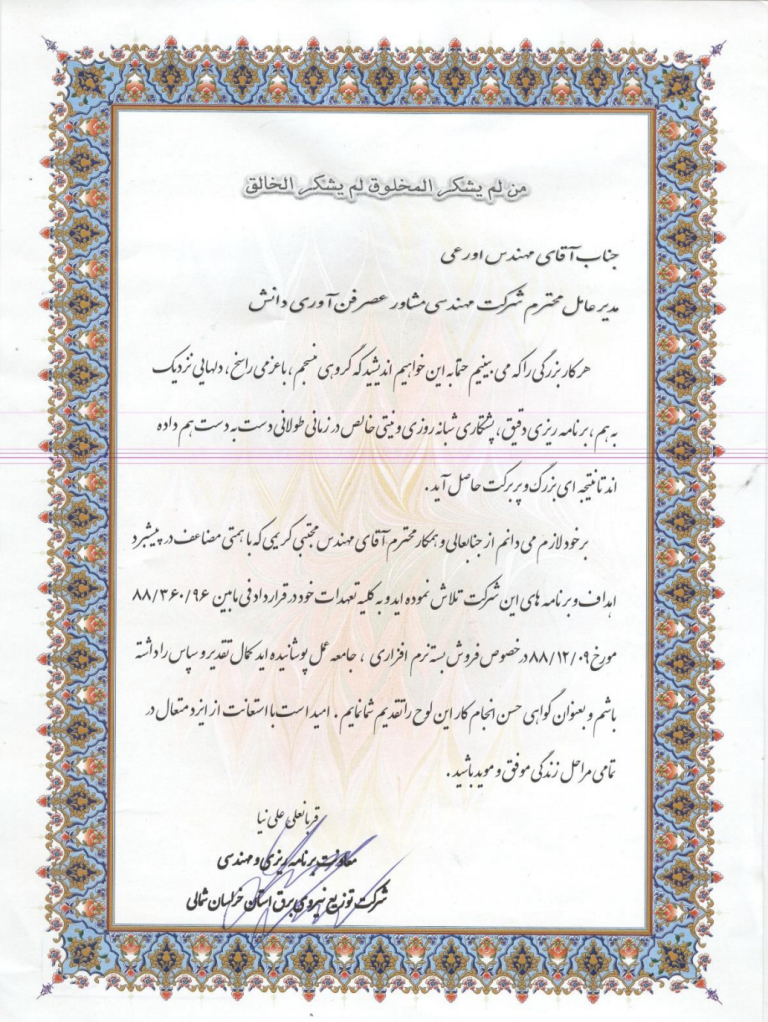 من لم يشكر المخلوق لم يشكر الخالق
جناب آقای مهندس اورعی
مدیر عامل محترم شرکت مهندسی مشاور عصر فن آوری دانش
هر کار بزرگی را که می بینیم حتما به این خواهیم اندیشید که گروهی منسجم ، با عزمی راسخ ، دلهایی نزدیک
به هم ، برنامه ریزی دقیق ، پشتکاری شبانه روزی و نیتی خالص در زمانی طولانی دست به دست هم داده
اند تا نتیجه ای بزرگ و پر برکت حاصل آید .
بر خود لازم می دانم از جنابعالی و همکار محترم آقای مهندس مجتبی کریمی که با همتی مضاعف در پیشبرد
اهداف و برنامه های این شرکت تلاش نموده اید و به کلیه تعهدات خود در قرارداد فی مابین ۸۸/۳۶۰/۹۶
مورخ ۸۸/۱۲/۰۹ در خصوص فروش بسته نرم افزاری ، جامعه عمل پوشانیده اید کمال تقدیر و سپاس را داشته
باشم و بعنوان گواهی حسن انجام کار این لوح را تقدیم شما نمایم . امید است با استعانت از ایزد متعال در
تمامی مراحل زندگی موفق و موید باشید .
قربانعلی علی نیا
معاونت برنامه ریزی و مهندسی
شرکت توزیع نیروی برق استان خراسان شمالی